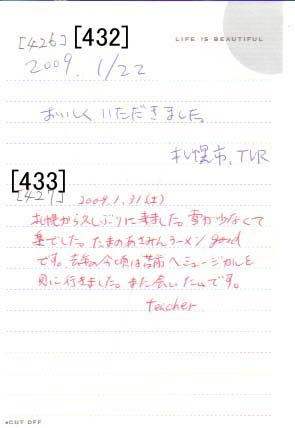 [426] [432]
LIFE IS BEAUTIFUL
2009. 1/22
おいしくいただきました。
札幌市、TVR
[433]
[427] 2009.1.31(土)
札幌から久しぶりに来ました。雪が少なくて
楽でした。たまのあさみんラーメン good
です。去年の今頃は苫前へミュージカルを
見に行きました。また会いたいです。
teacher
CUT OFF